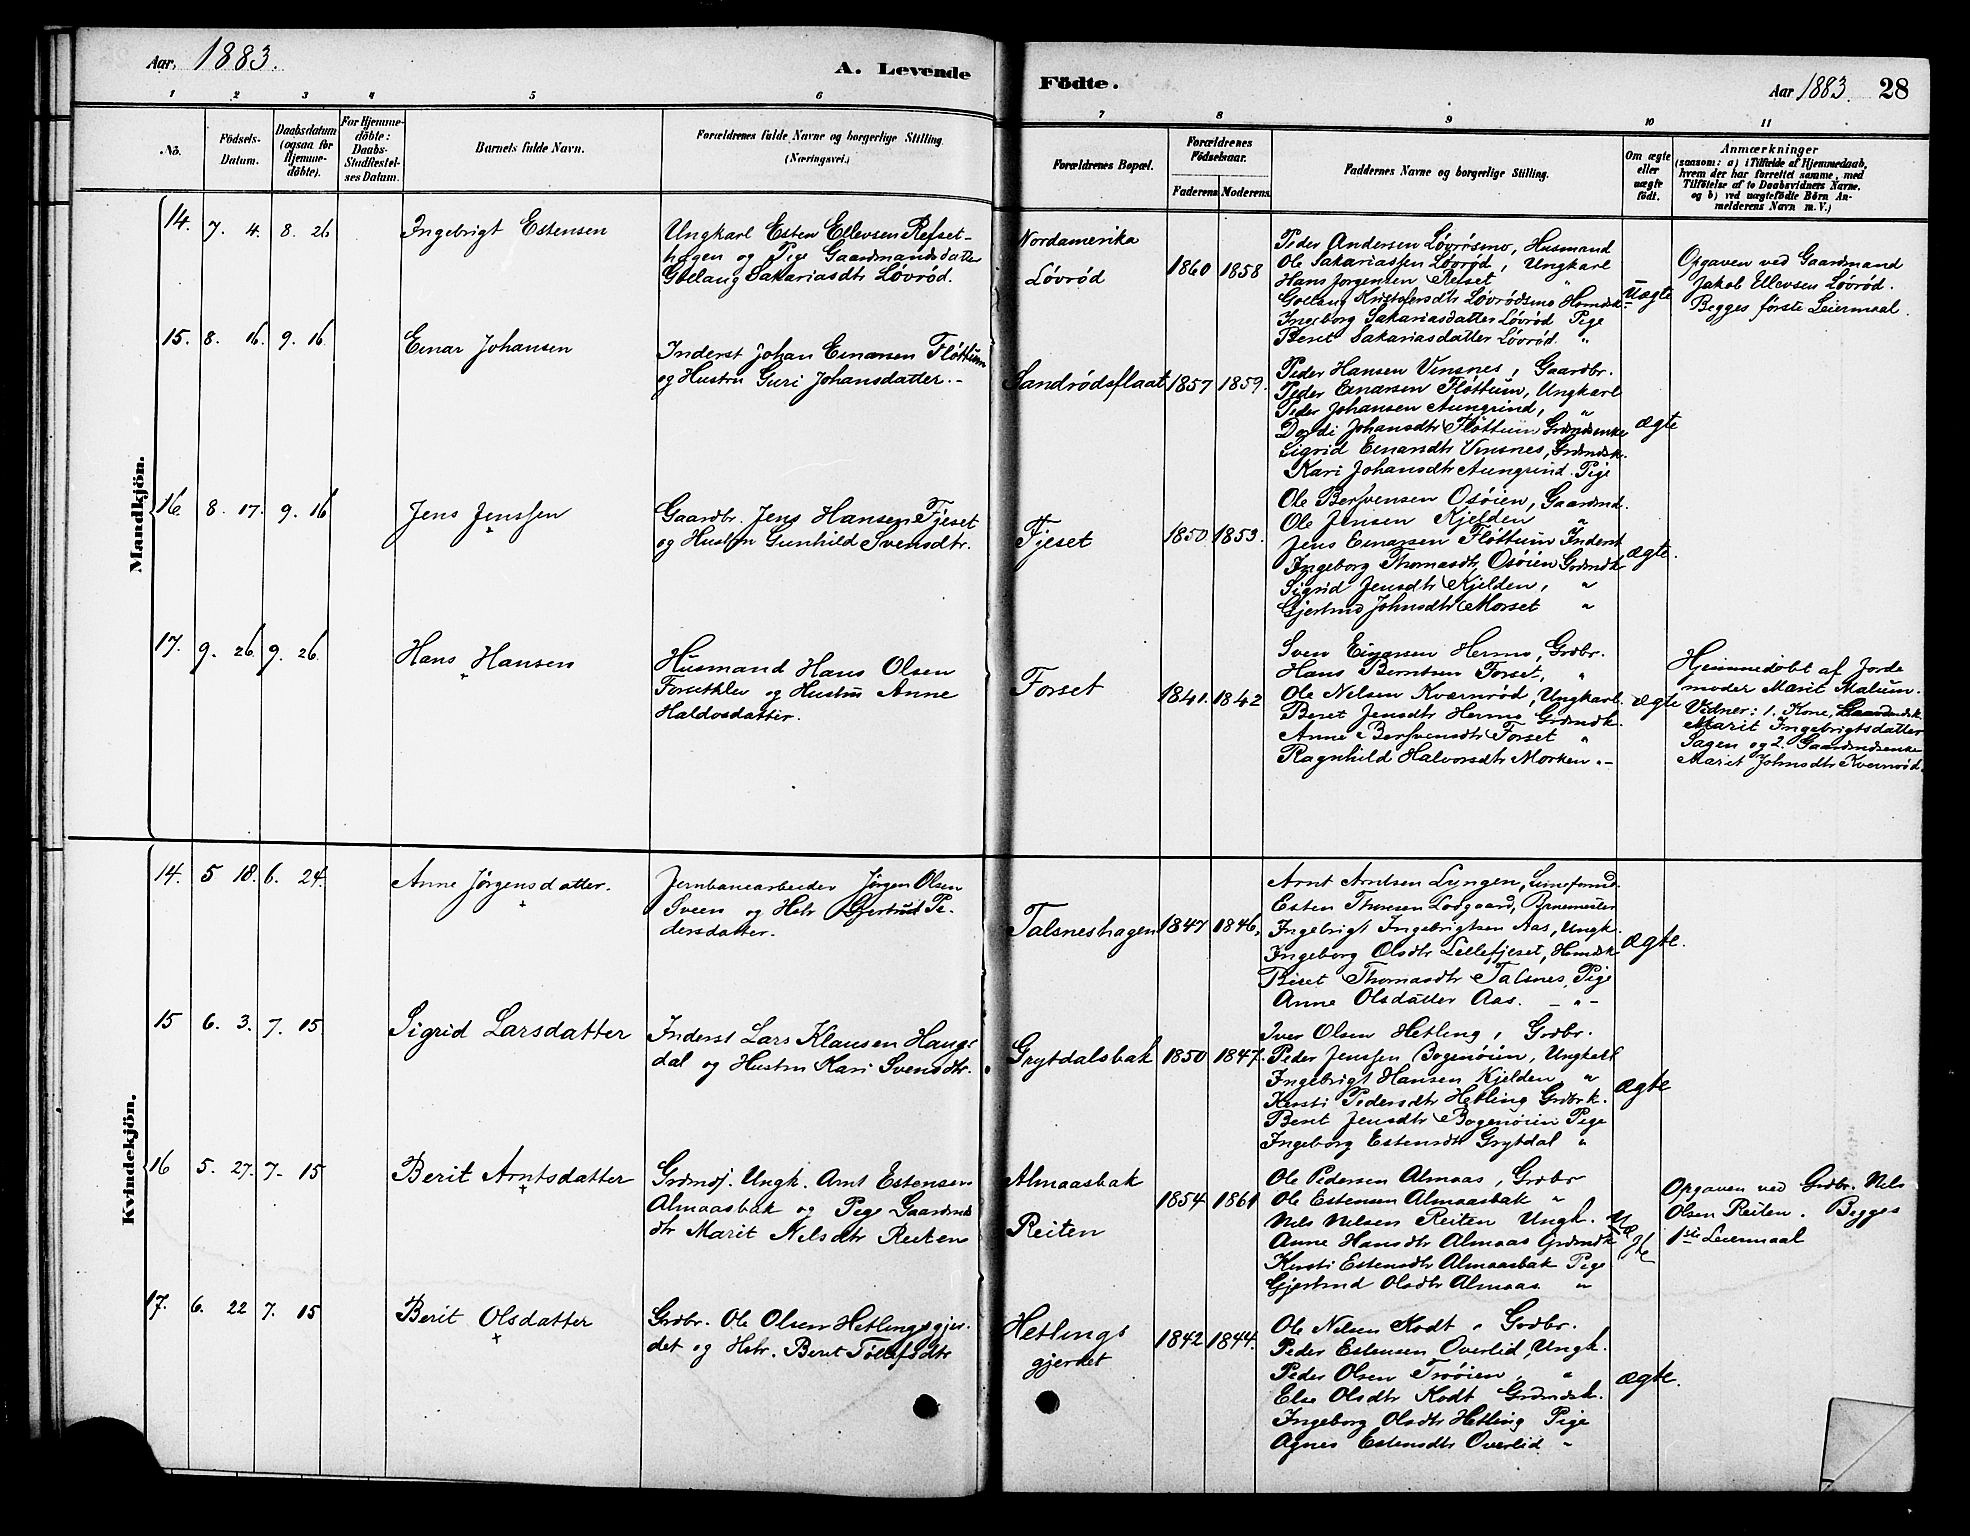 Aar. 1883.
A. Levende
Födte.
Aar 1883. 28
1 2 3 4 5 6 7 8 9 10 11
No.
Födsels-Datum.
Daabsdatum (ogsaa for Hjemme-döbte).
For Hjemme-döbte: Daabs-Stadfæstel-ses Datum.
Barnets fulde Navn.
Forældrenes fulde Navne og borgerlige Stilling. (Næringsvei.)
Forældrenes Bopæl.
Forældrenes Födselsaar.
Faderens. Moderens.
Faddernes Navne og borgerlige Stilling.
Om ægte eller uægte födt.
Anmærkninger
(saasom: a) i Tilfælde af Hjemmedaab,
hvem der har forrettet samme, med
Tilföielse af to Daabsvidners Navne.
og b) ved uægtefödte Börn An-
melderens Navn m. V.)
Mandkjön.
14. 7. 4. 8. 26
Ingebrigt Estensen
Ungkarl Esten Ellevsen Refset-
hagen og Pige Gaardmandsdatter
Gollaug Sakariasdtr Løvrød.
Nordamerika
Løvrød
1860 1858
Peder Andersen Løvrøsmo, Husmand
Ole Sakariassen Løvrød, Ungkarl
Hans Jorgensen Refset "
Gollaug Kristofersdtr Løvrødsmo Hsmdsk.
Ingeborg Sakariasdatter Løvrød Pige
Beret Sakariasdatter Løvrød. "
Uægte
Opgaven ved Gaardmand
Jakob Ellevsen Løvrød.
Begges første Leiermaal.
15. 8. 16. 9. 16
Einar Johansen
Inderst Johan Einarsen Fløttum
og Hustru Guri Johansdatter.-
Sandrødsflaat
1857 1859.
Peder Hansen Vinsnes, Gaardbr.
Peder Einarsen Fløttum, Ungkarl
Peder Johansen Aungrind, "
Dordi Johansdtr Fløttum Grdmdsenke
Sigrid Einarsdtr Vinsnes, Grdmdsk.
Kari Johansdtr Aungrind. Pige
ægte
16 8. 17. 9. 16
Jens Jenssen
Gaardbr. Jens Hansen Fjeset
og Hustru Gunhild Svensdtr.
Fjeset
1850 1853.
Ole Bersvensen Osøien, Gaardmd.
Ole Jensen Kjelden "
Jens Einarsen Fløttum Inderst
Ingeborg Thomasdtr Osøien Grdmdk
Sigrid Jensdtr Kjelden, "
Gjertrud Johnsdtr Morset "
ægte.
17. 9. 26 9. 26
Hans Hansen
Husmand Hans Olsen
Forsetklev og Hustru Anne
Haldosdatter.
Forset
1841. 1842
Sven Einarsen Hermo, Grdbr.
Hans Berntsen Forset, "
Ole Nelsen Kværnrød, Ungkarl.
Beret Jensdtr Hermo Grdmdk.
Anne Bersvensdtr Forset "
Ragnhild Halvorsdtr Morken "-
ægte
Hjemmedøbt af Jorde
moder Marit Malum.
Vidner: 1. Kone,
Marit Ingebrigtsdatter
Sagen og 2. Gaardmdsenke
Marit Johnsdtr Kvernrød.
Kvindekjön.
14. 5 18. 6. 24.
Anne Jørgensdatter.
Jernbanearbeider Jørgen Olsen
Sveen og Hstr Gjertrud Pe-
dersdatter.
Talsneshagen
1847 1846.
Arnt Arntsen Lyngen,
Esten Thoresen Lodgaard, Banemester
Ingebrigt Ingebrigtsen Aas, Ungk.
Ingeborg Olsdtr Lillefjeset, Hsmdsk
Beret Thomasdtr Talsnes, Pige
Anne Olsdatter Aas. - " -
ægte.
15 6. 3. 7. 15
Sigrid Larsdatter
Inderst Lars Klausen Haugs
dal og Hustru Kari Svensdtr.
Grytdalsbak
1850 1847.
Iver Olsen Hetling, Grdbr.
Peder Jenssen Bogenøien, Ungkarl
Ingebrigt Hansen Kjelden "
Kersti Pedersdtr Hetling Grdbrk.
Beret Jensdtr Bogenøien Pige
Ingeborg Estensdtr Grytdal "
ægte
16 5. 27. 7. 15
Berit Arntsdatter
Grdmds. Ungk. Arnt Estensen
Almaasbak og Pige Gaardmds
dtr Marit Nilsdtr Reiten
Almaasbak
Reiten
1854 1861
Ole Pedersen Almaas, Grdbr
Ole Estensen Almaasbak "
Nils Nilsen Reiten Ungk.
Anne Hansdtr Almaas Grdmdk
Kersti Estensdtr Almaasbak Pige
Gjertrud Olsdtr Almaas "
Uæ
gte
Opgaven ved Grdbr. Nils
Olsen Reiten. Begges
1ste Leiermaal
17. 6. 22 7. 15
Berit Olsdatter
Grdbr. Ole Olsen Hetlingsgjer-
det og Hstr. Beret Tollefsdtr
Hetlings
gjerdet
1842 1844.
Ole Nelsen Kodt, Grdbr.
Peder Estensen Overlid, Ungk.
Peder Olsen Trøøien, "
Else Olsdtr Kodt Grdmdsk.
Ingeborg Olsdtr Hetling Pige
Agnes Estensdtr Overlid "
ægte.